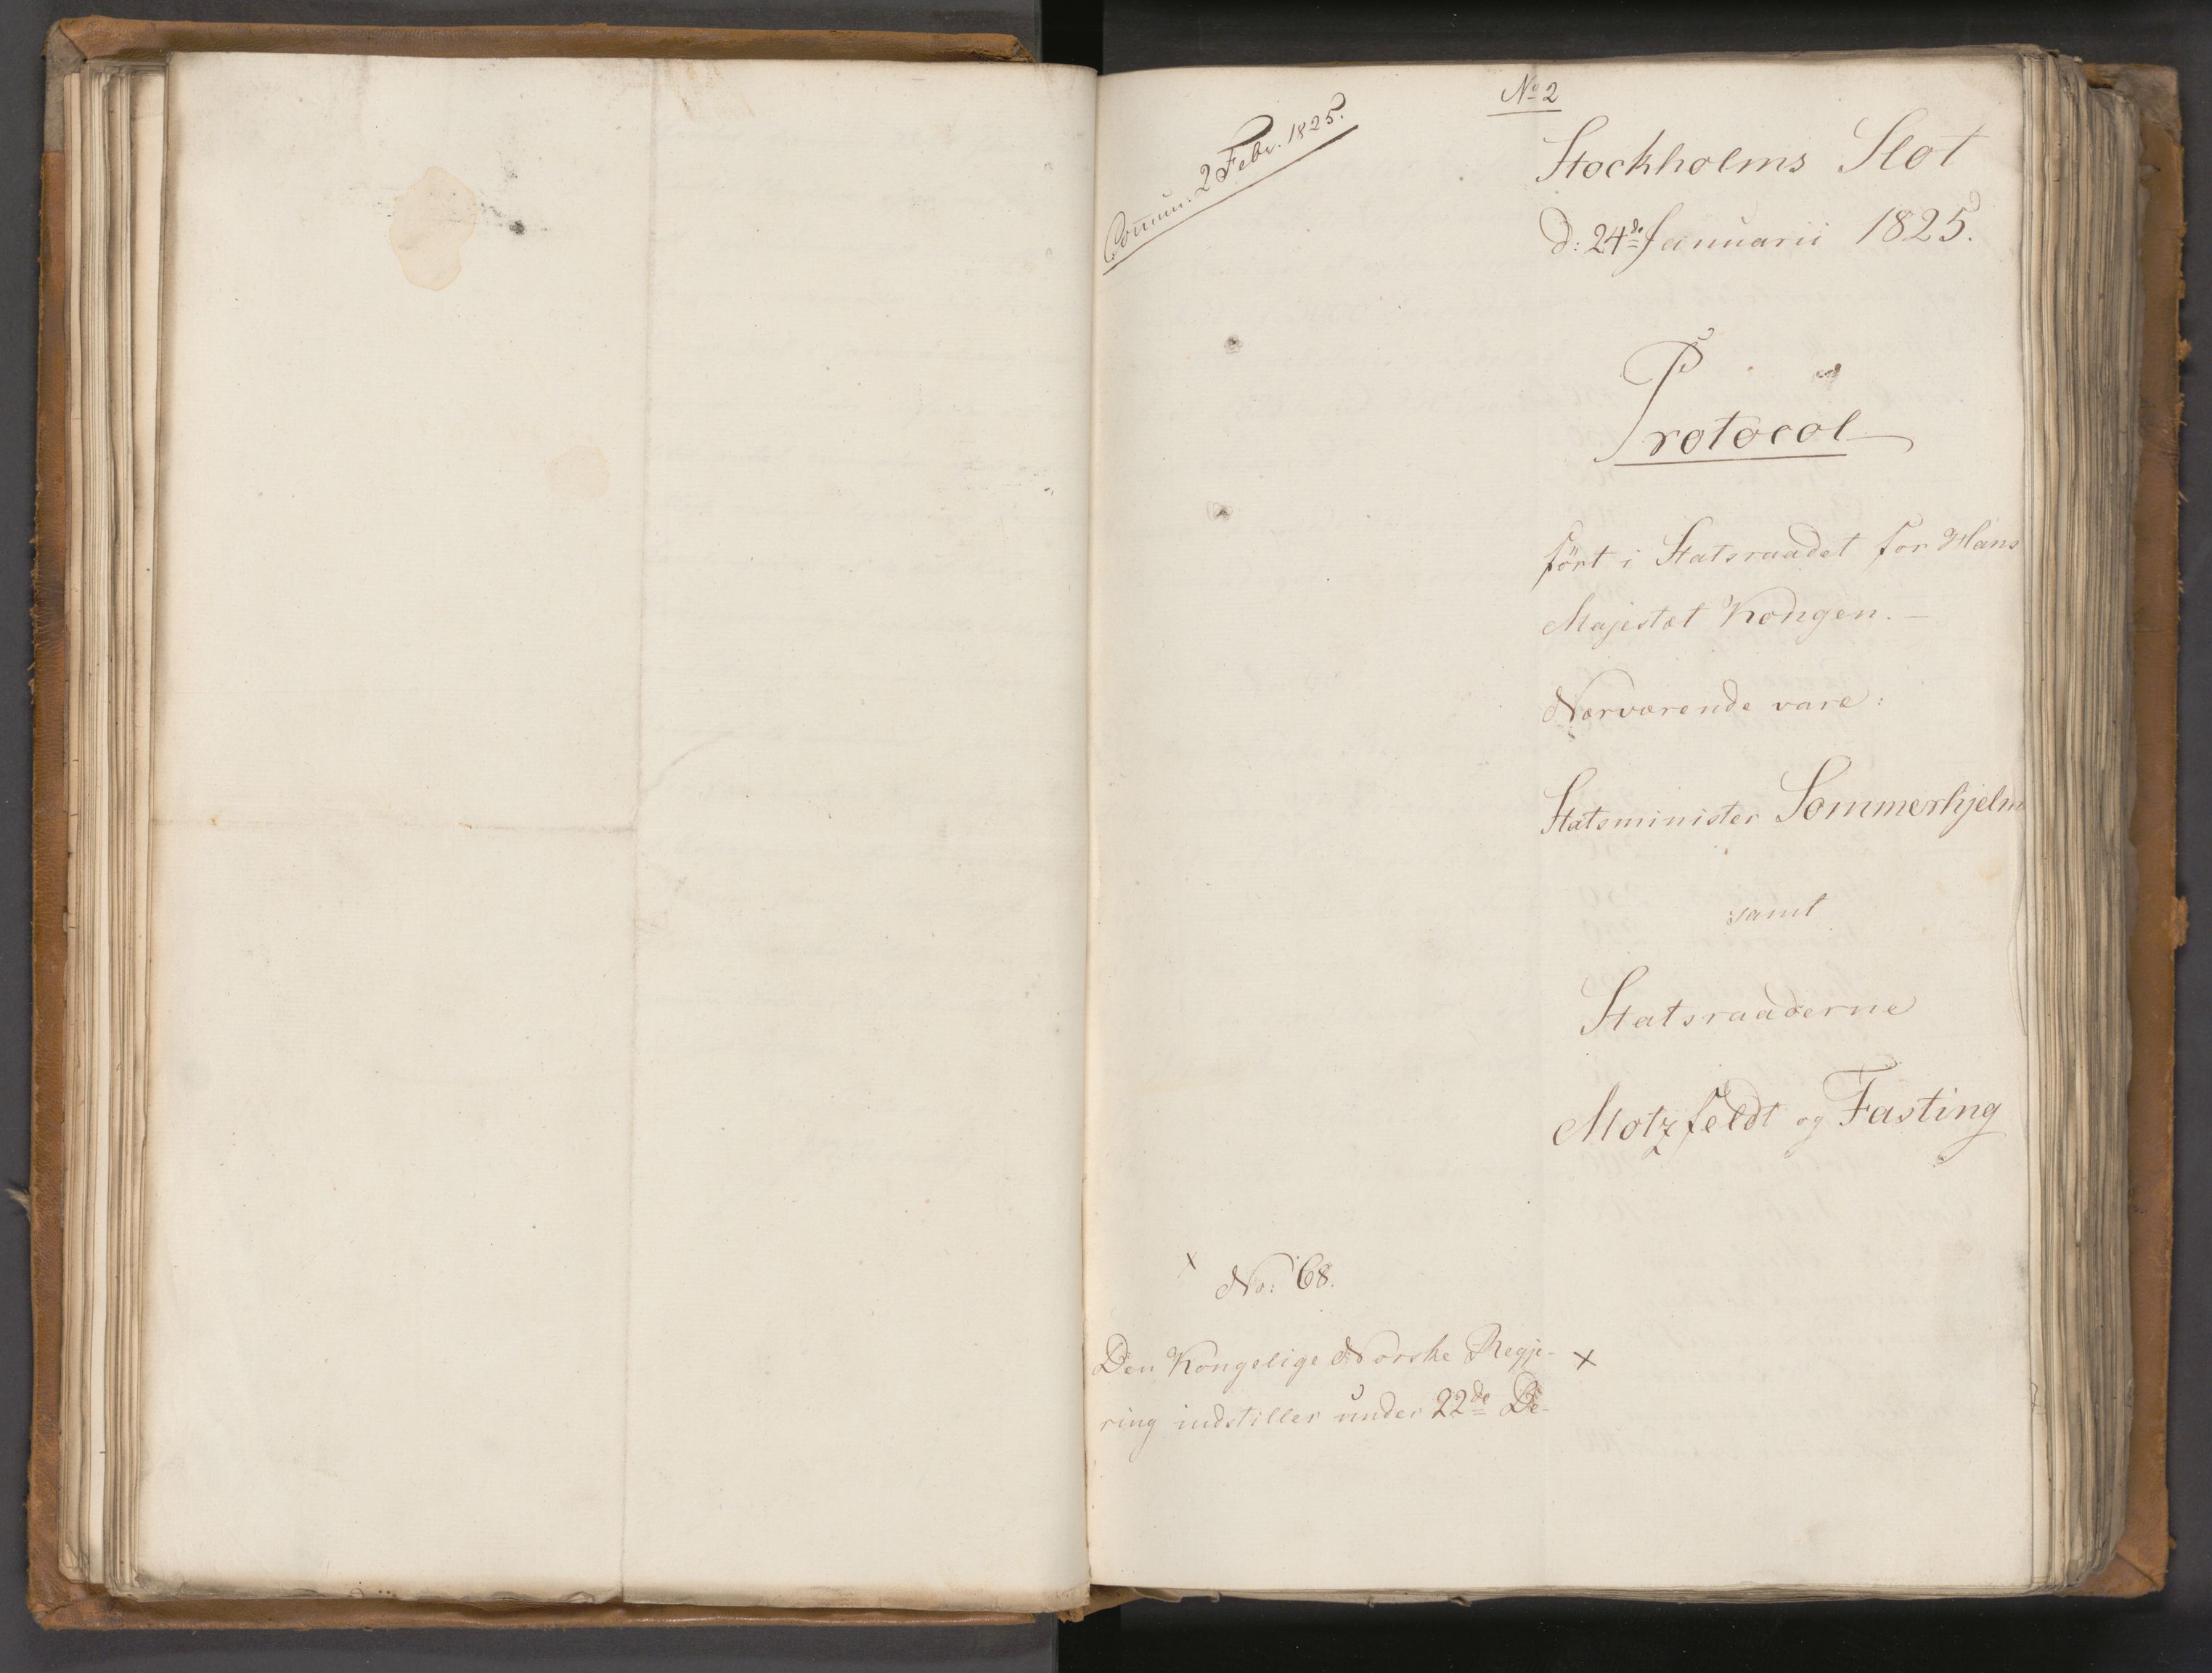 No 2
Comun. 2 Febr. 1825.
Stockholms Slot
d: 24de Januarii 1825.
Protocol
fört i Statsraadet for Hans
Majestæt Kongen. —
Nærværende vare:
Statsminister Sommerhjelm
samt
Statsraaderne
Motzfeldt og Fasting
x No: 68.
Den Kongelige Norske Regje- x
ring indstiller under 22de De-